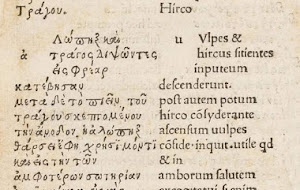 Τράγου.
Λώπηξ καὶ
ἀ τράγος διψῶντες
εἰς φρέαρ
κατέβησαν
μετὰ δὲ τὸ πιεῖν, τοῦ
τράγου σκεπτομένου
τὴν ἄνοδον, ἡ ἀλώπηξ
θάρσει ἔφη, χρήσιμόν τι
καὶ εἰς τὴν τῶν
ἀμφοτέρων σωτηρίαν
Hirco
u Vlpes &
hircus sitientes
inputeum
descenderunt.
post autem potum
hirco cōsyderante
ascensum uulpes
cōfide·inquit·utile qd
& in
amborum salutem